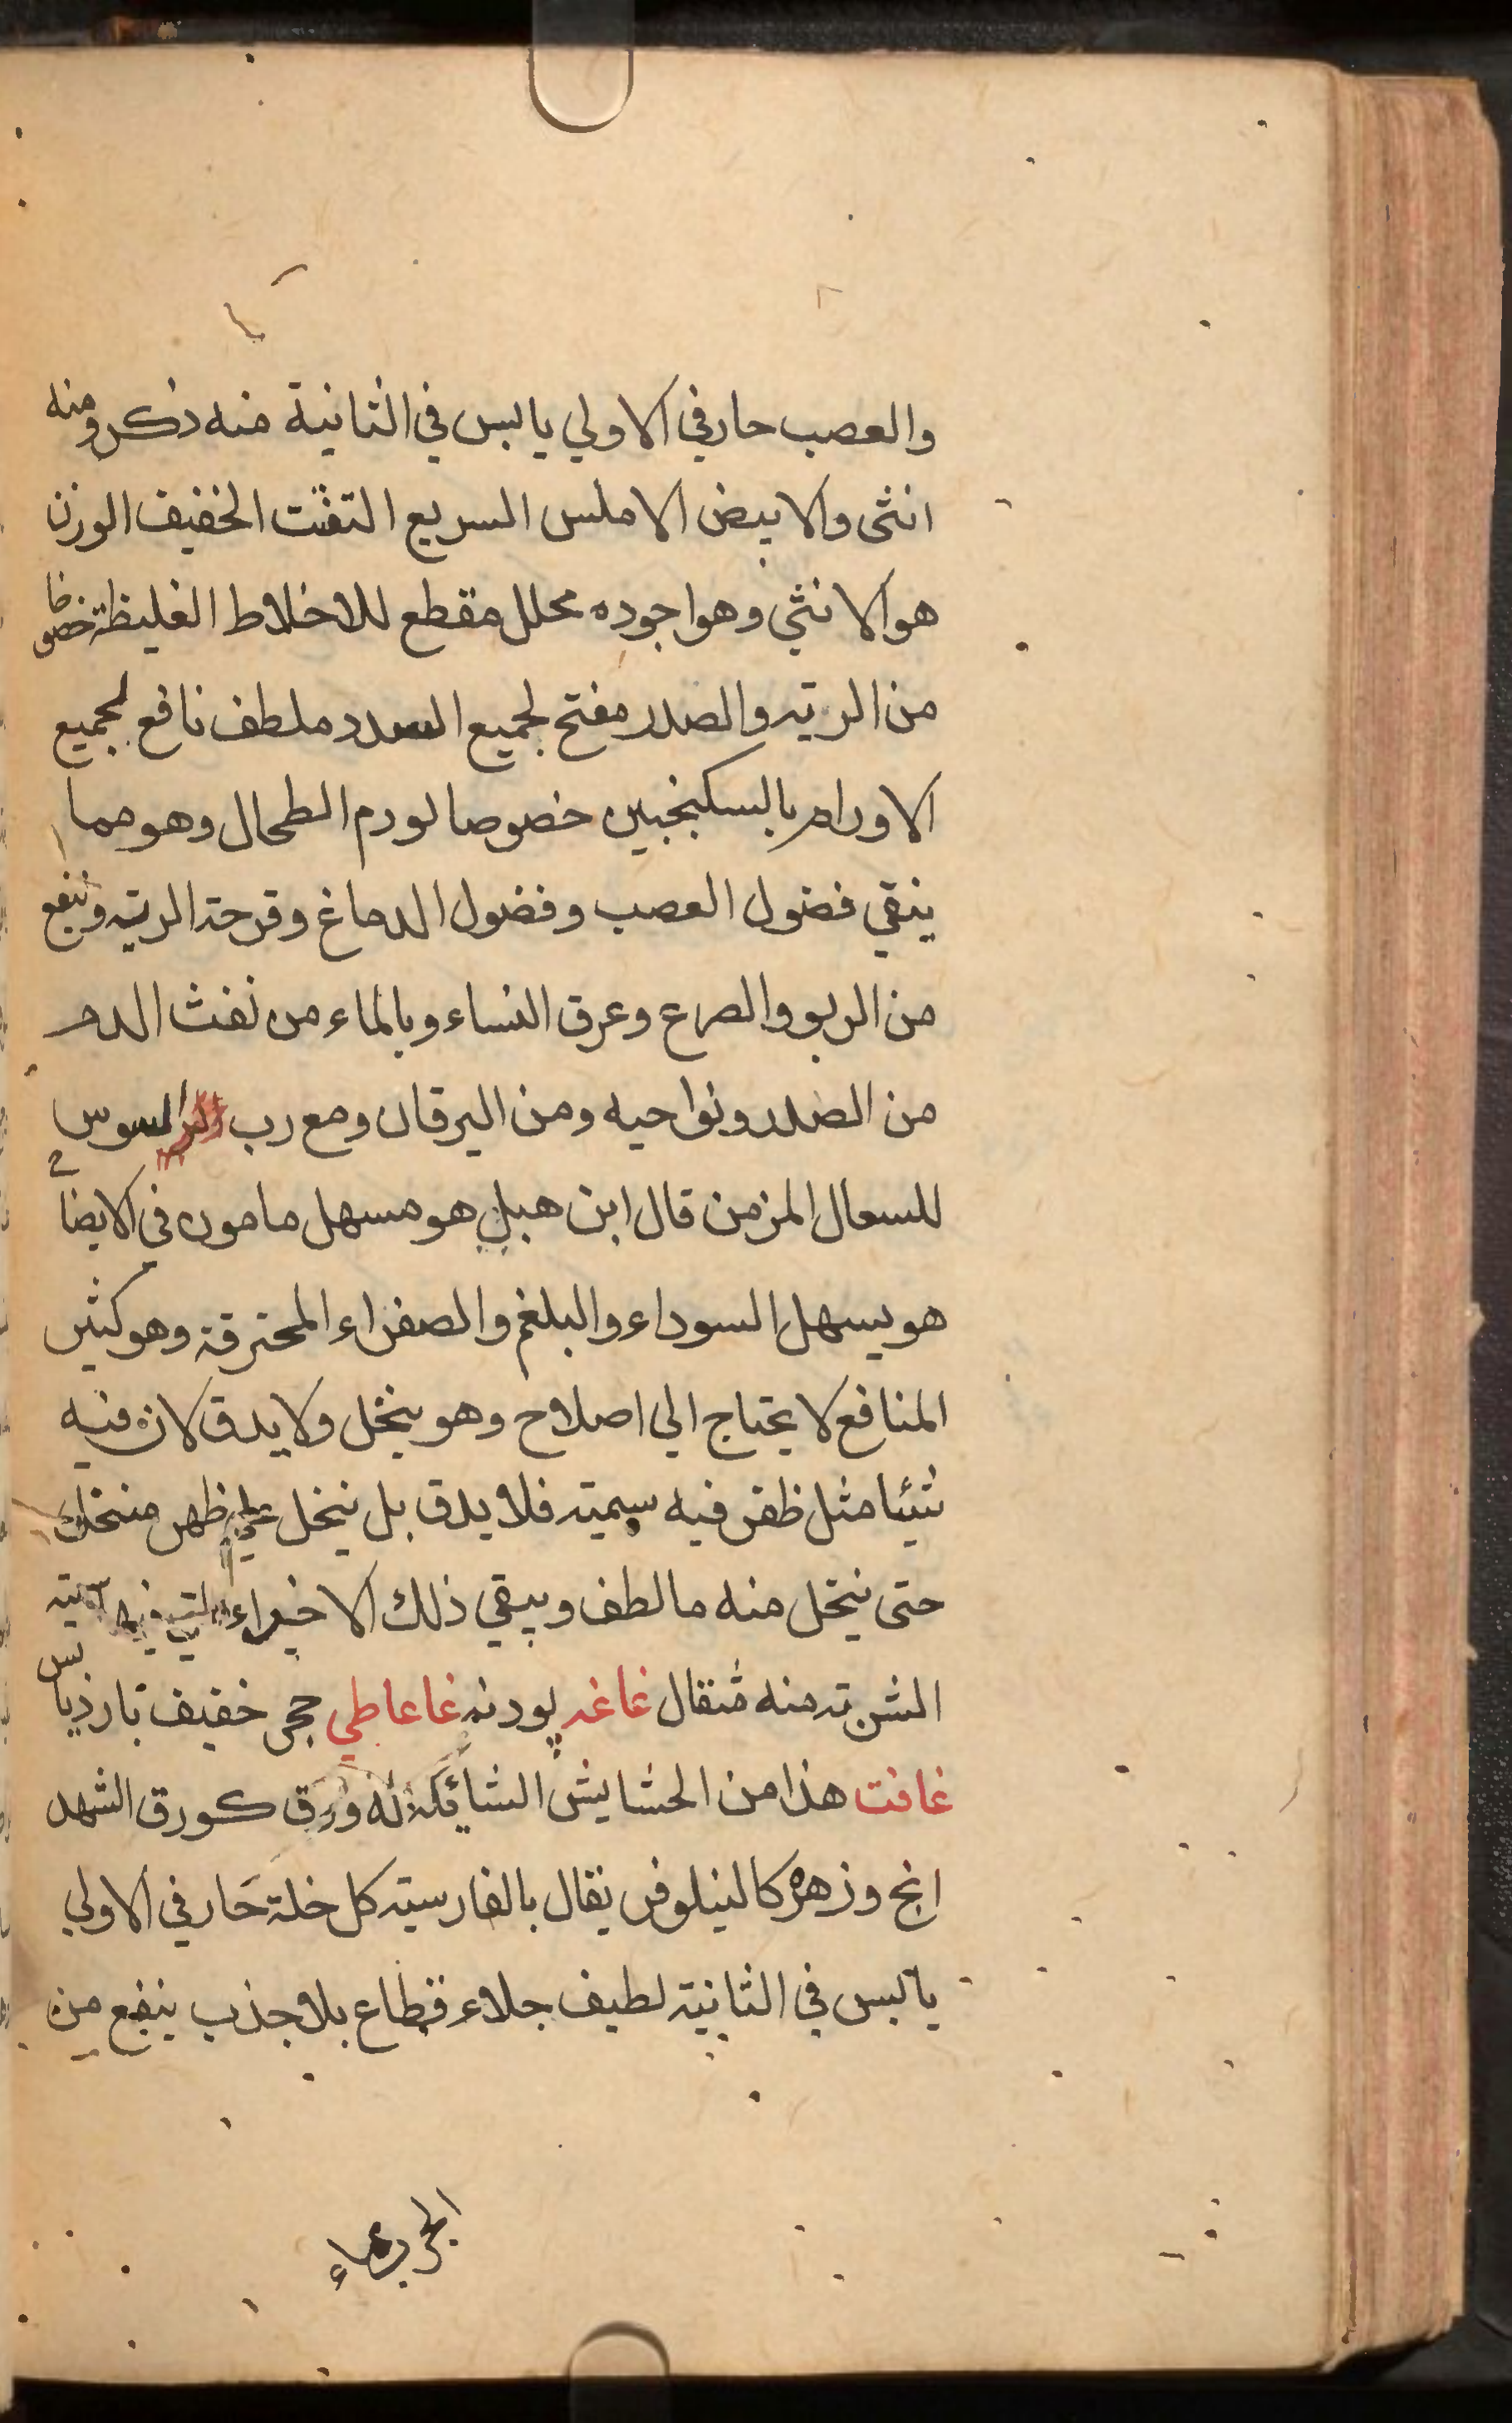 والعصب حار في الاولي يابس في الثانية منه ذكر ومنه
انثى والابيض الاملس السريع التفتت الخفيف الوزن
هو الانثي وهو اجوده محلل مقطع للاخلاط الغليظة خصوصا
من الريه والصدر مفتح لجميع السدد ملطف نافع لجميع
الاورام بالسكنجبين خصوصا لورم الطحال وهو مما
ينقي فضول العصب وفضول الدماغ وقرحة الرية وينفع
من الربو والصرع وعرق النساء وبالماء من نفث الدم
من الصدر ونواحيه ومن اليرقان ومع رب السوس
للسعال المزمن قال ابن هبل هو مسهل مامون في الايضا
هو يسهل السوداء والبلغم والصفراء المحترقة وهو كثير
المنافع لا يحتاج الي اصلاح وهو ينخل ولا يدق لان فيه
شيئا مثل ظفر فيه سمية فلا يدق بل ينخل علي ظهر منخل
حتى ينخل منه ما لطف ويبقي ذلك الاخراء التي فيها سمية
الشربة منه مثقال غاغه پودنه غاعاطي حجر خفيف بارد يابس
غافت هذا من الحشايش الشائكة له ورق كورق الشهد
انج وزهره كالنيلوفر يقال بالفارسية كل خلة حار في الاولي
يابس في الثانية لطيف جلاء قطاع بلا جذب ينفع من